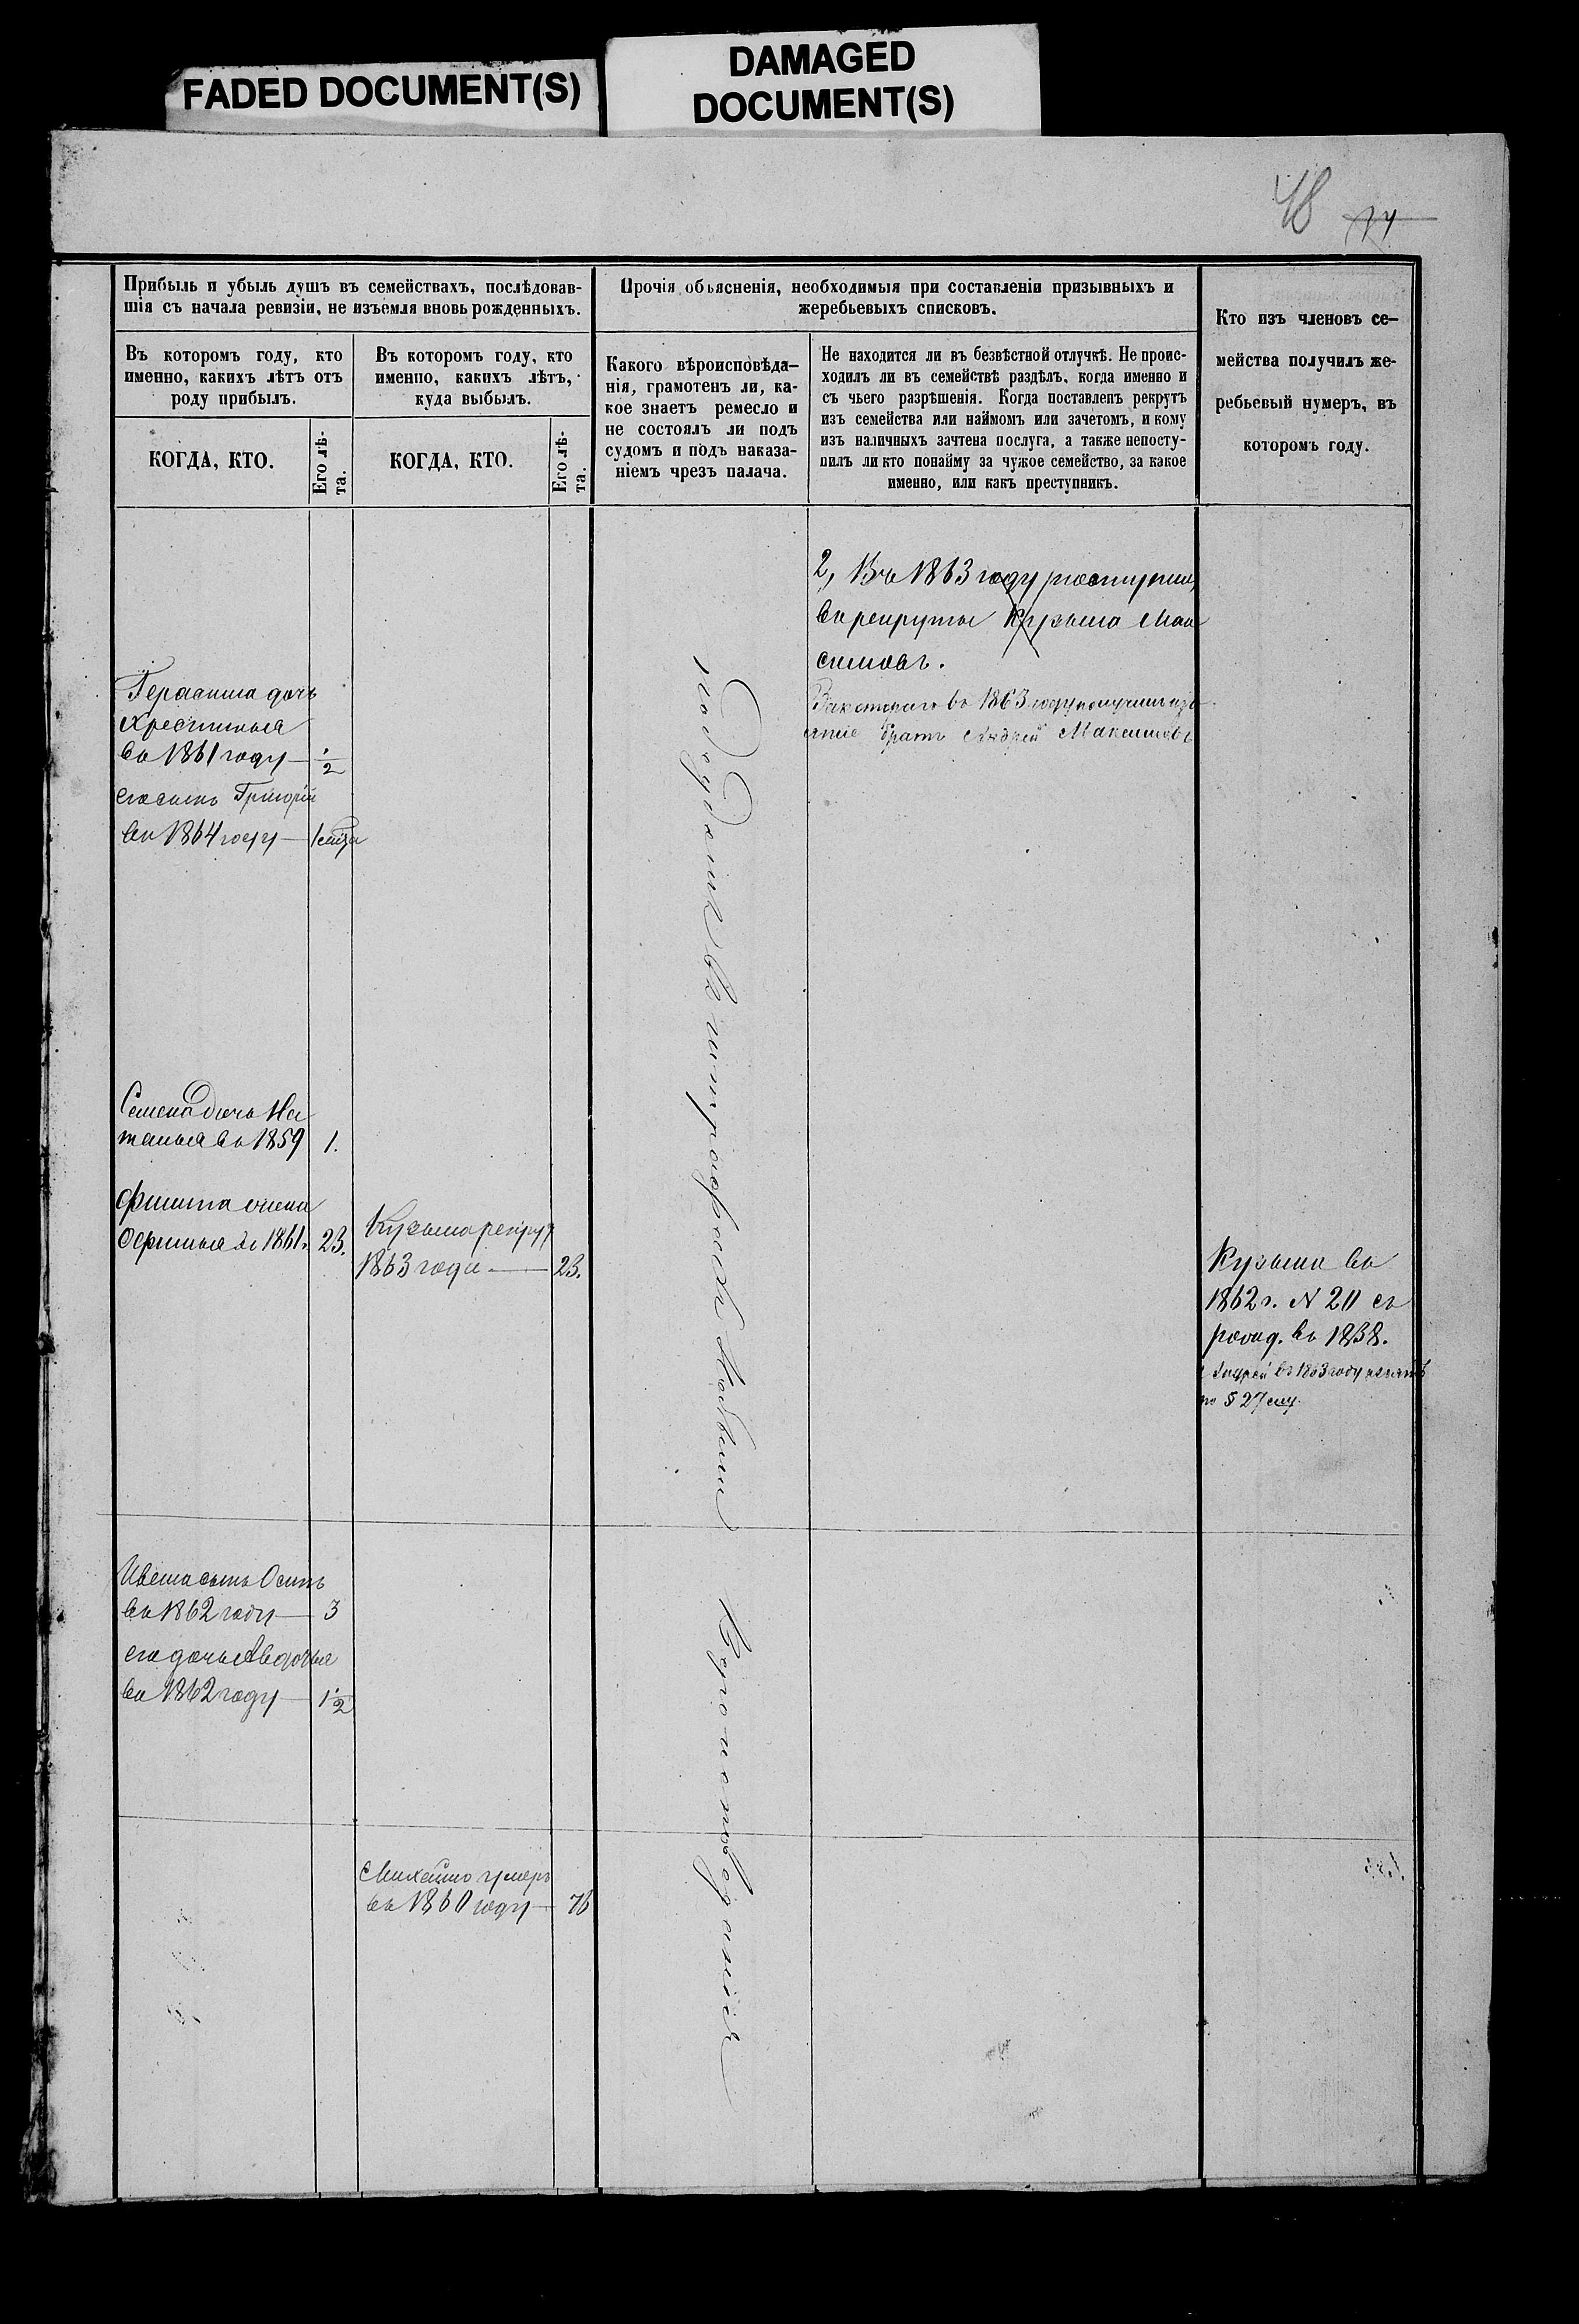 FADED DOCUMENT(S)
DAMAGED
DOCUMENT(S)
48
Прибыль и убыль душъ въ семействахъ, послѣдовав-
шія съ начала ревизіи, не изъемля вновь рожденныхъ.
Въ которомъ году, кто
именно, какихъ лѣтъ отъ
роду прибылъ.
КОГДА, КТО.
Его лѣ-
та.
Въ которомъ году, кто
именно, какихъ лѣтъ,
куда выбылъ.
КОГДА, КТО.
Его лѣ-
та.
Прочія объясненія, необходимыя при составленіи призывныхъ и
жеребьевыхъ списковъ.
Какого вѣроисповѣда-
нія, грамотенъ ли, ка-
кое знаетъ ремесло и
не состоялъ ли подъ
судомъ и подъ наказа-
ніемъ чрезъ палача.
Не находится ли въ безвѣстной отлучкѣ. Не проис-
ходилъ ли въ семействѣ раздѣлъ, когда именно и
съ чьего разрѣшенія. Когда поставленъ рекрутъ
изъ семейства или наймомъ или зачетомъ, и кому
изъ наличныхъ зачтена послуга, а также непосту-
пилъ ли кто понайму за чужое семейство, за какое
именно, или какъ преступникъ.
Кто изъ членовъ се-
мейства получилъ же-
ребьевый нумеръ, въ
которомъ году.
2, Въ 1863 году поступилъ
въ рекруты Кузьма Мак
симовъ.
въ 1863 году получилъ изъ
ятіе братъ Андрей Максимовъ
Герасима дочь
Христинья
въ 1861 году — 1/2
его сынъ Григорій
въ 1864 году —
Семена дочь На
талья въ 1859 1.
Офимья въ 1861. 23.
Кузьма рекрут
1863 года — 23.
Кузьма въ
1862 г. N 20 съ
въ 1838.
Андрей въ 1863 году изъятъ
по § 27
Ивана сынъ Осипъ
въ 1862 году — 3
его дочь Авдотья
въ 1862 году — 1 1/2
Михайло умеръ
въ 1860 году — 76
вероисповеданія